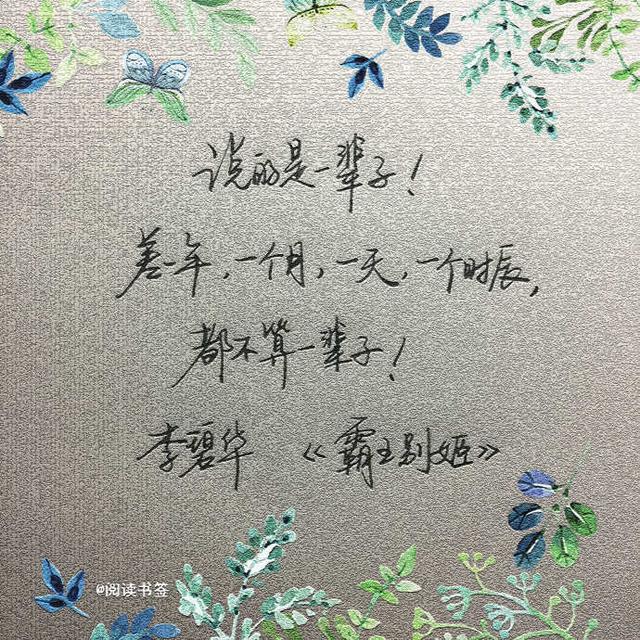 说的是一辈子！
差一年，一个月，一天，一个时辰，
都不算一辈子！
李碧华 《霸王别姬》
@阅读书签